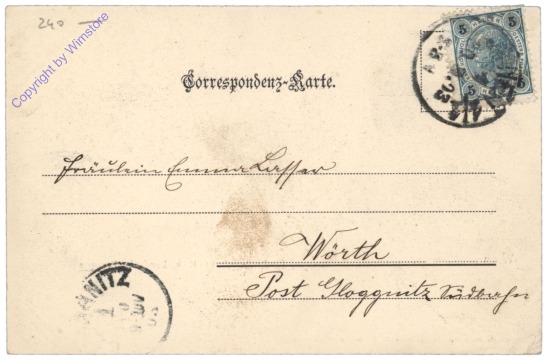 240 —
Copyright by Wimstore
5 5
5 5
Correspondenz-Karte.
Fräulein Emma Lasser
Wörth
Post Gloggnitz Südbahn
NITZ